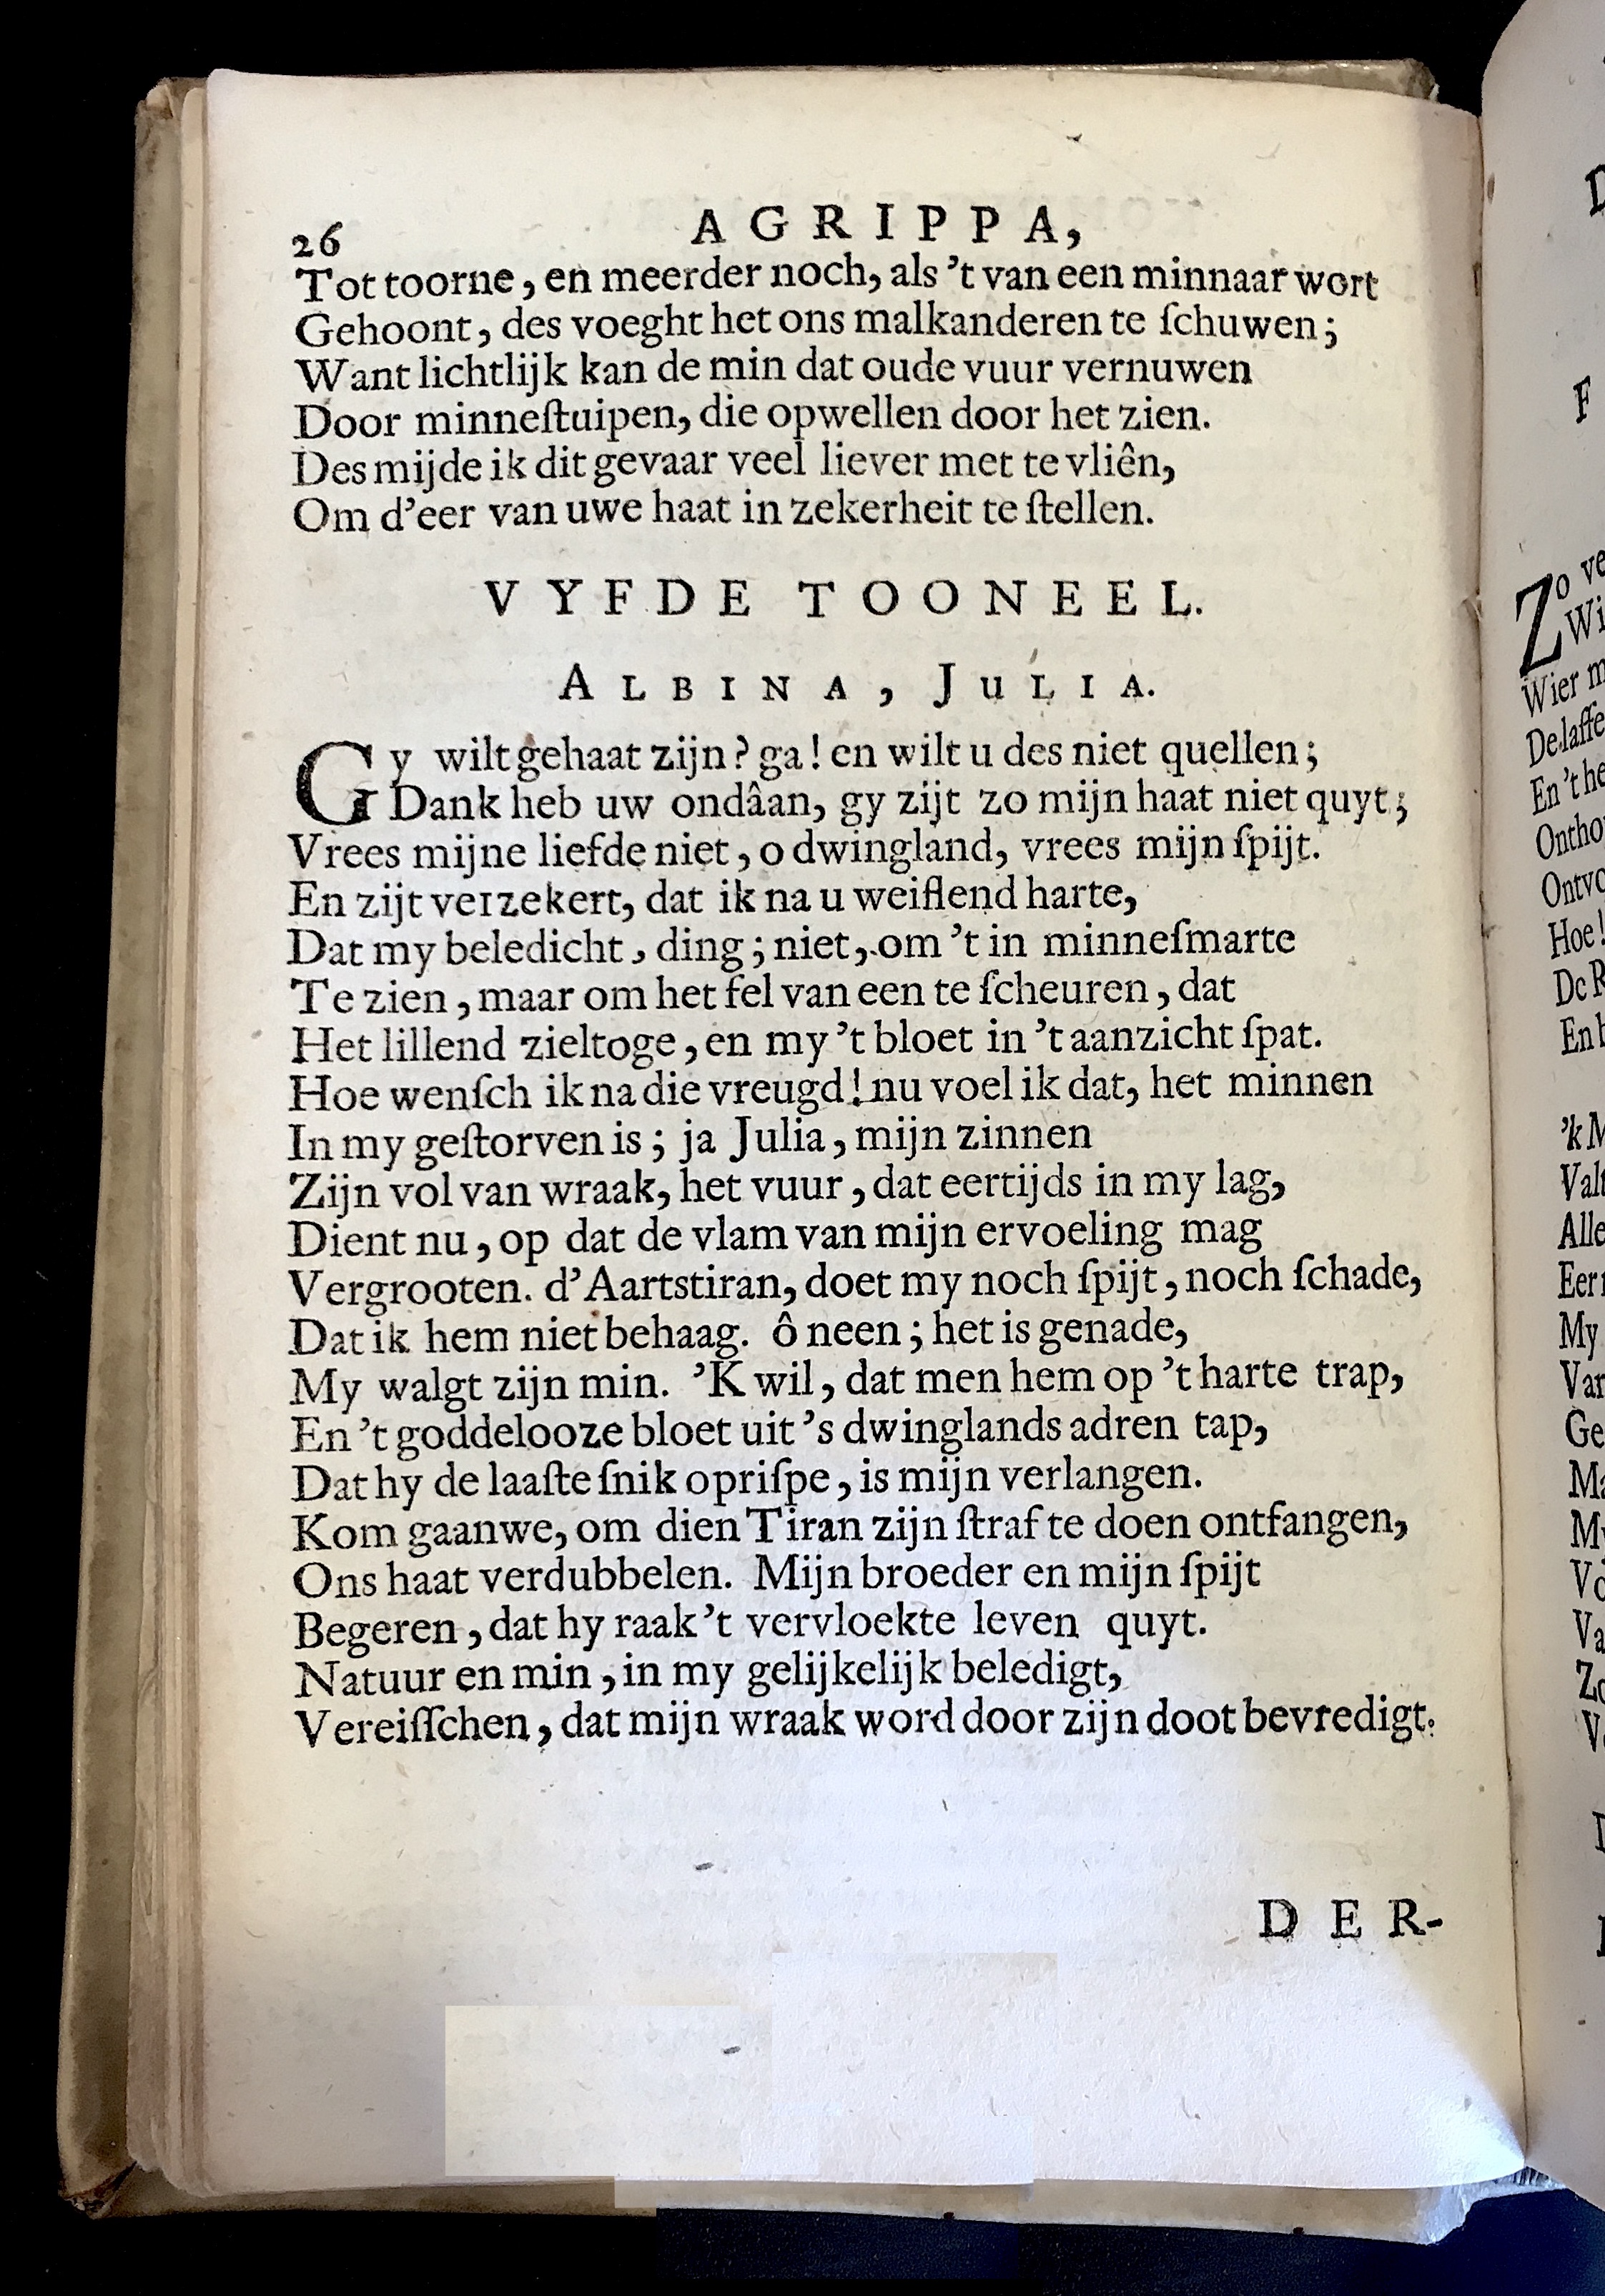 26 AGRIPPA,
Tot toorne, en meerder noch, als 't van een minnaar wort
Gehoont, des voeght het ons malkanderen te ſchuwen;
Want lichtlijk kan de min dat oude vuur vernuwen
Door minneſtuipen, die opwellen door het zien.
Des mijde ik dit gevaar veel liever met te vliên,
Om d'eer van uwe haat in zekerheit te ſtellen.
VYFDE TOONEEL.
ALBINA, JULIA.
Gy wilt gehaat zijn? ga! en wilt u des niet quellen;
Dank heb uw ondâan, gy zijt zo mijn haat niet quyt;
Vrees mijne liefde niet, o dwingland, vrees mijn ſpijt.
En zijt verzekert, dat ik na u weiflend harte,
Dat my beledicht, ding; niet, om 't in minneſmarte
Te zien, maar om het fel van een te ſcheuren, dat
Het lillend zieltoge, en my 't bloet in 't aanzicht ſpat.
Hoe wenſch ik na die vreugd! nu voel ik dat, het minnen
In my geſtorven is; ja Julia, mijn zinnen
Zijn vol van wraak, het vuur, dat eertijds in my lag,
Dient nu, op dat de vlam van mijn ervoeling mag
Vergrooten. d'Aartstiran, doet my noch ſpijt, noch ſchade,
Dat ik hem niet behaag. ô neen; het is genade,
My walgt zijn min. 'K wil, dat men hem op 't harte trap,
En 't goddelooze bloet uit 's dwinglands adren tap,
Dat hy de laaſte ſnik opriſpe, is mijn verlangen.
Kom gaanwe, om dien Tiran zijn ſtraf te doen ontfangen,
Ons haat verdubbelen. Mijn broeder en mijn ſpijt
Begeren, dat hy raak 't vervloekte leven quyt.
Natuur en min, in my gelijkelijk beledigt,
Vereiſſchen, dat mijn wraak word door zijn doot bevredigt.
DER-
Zo
Wier
En 't
Hoe!
'k
My